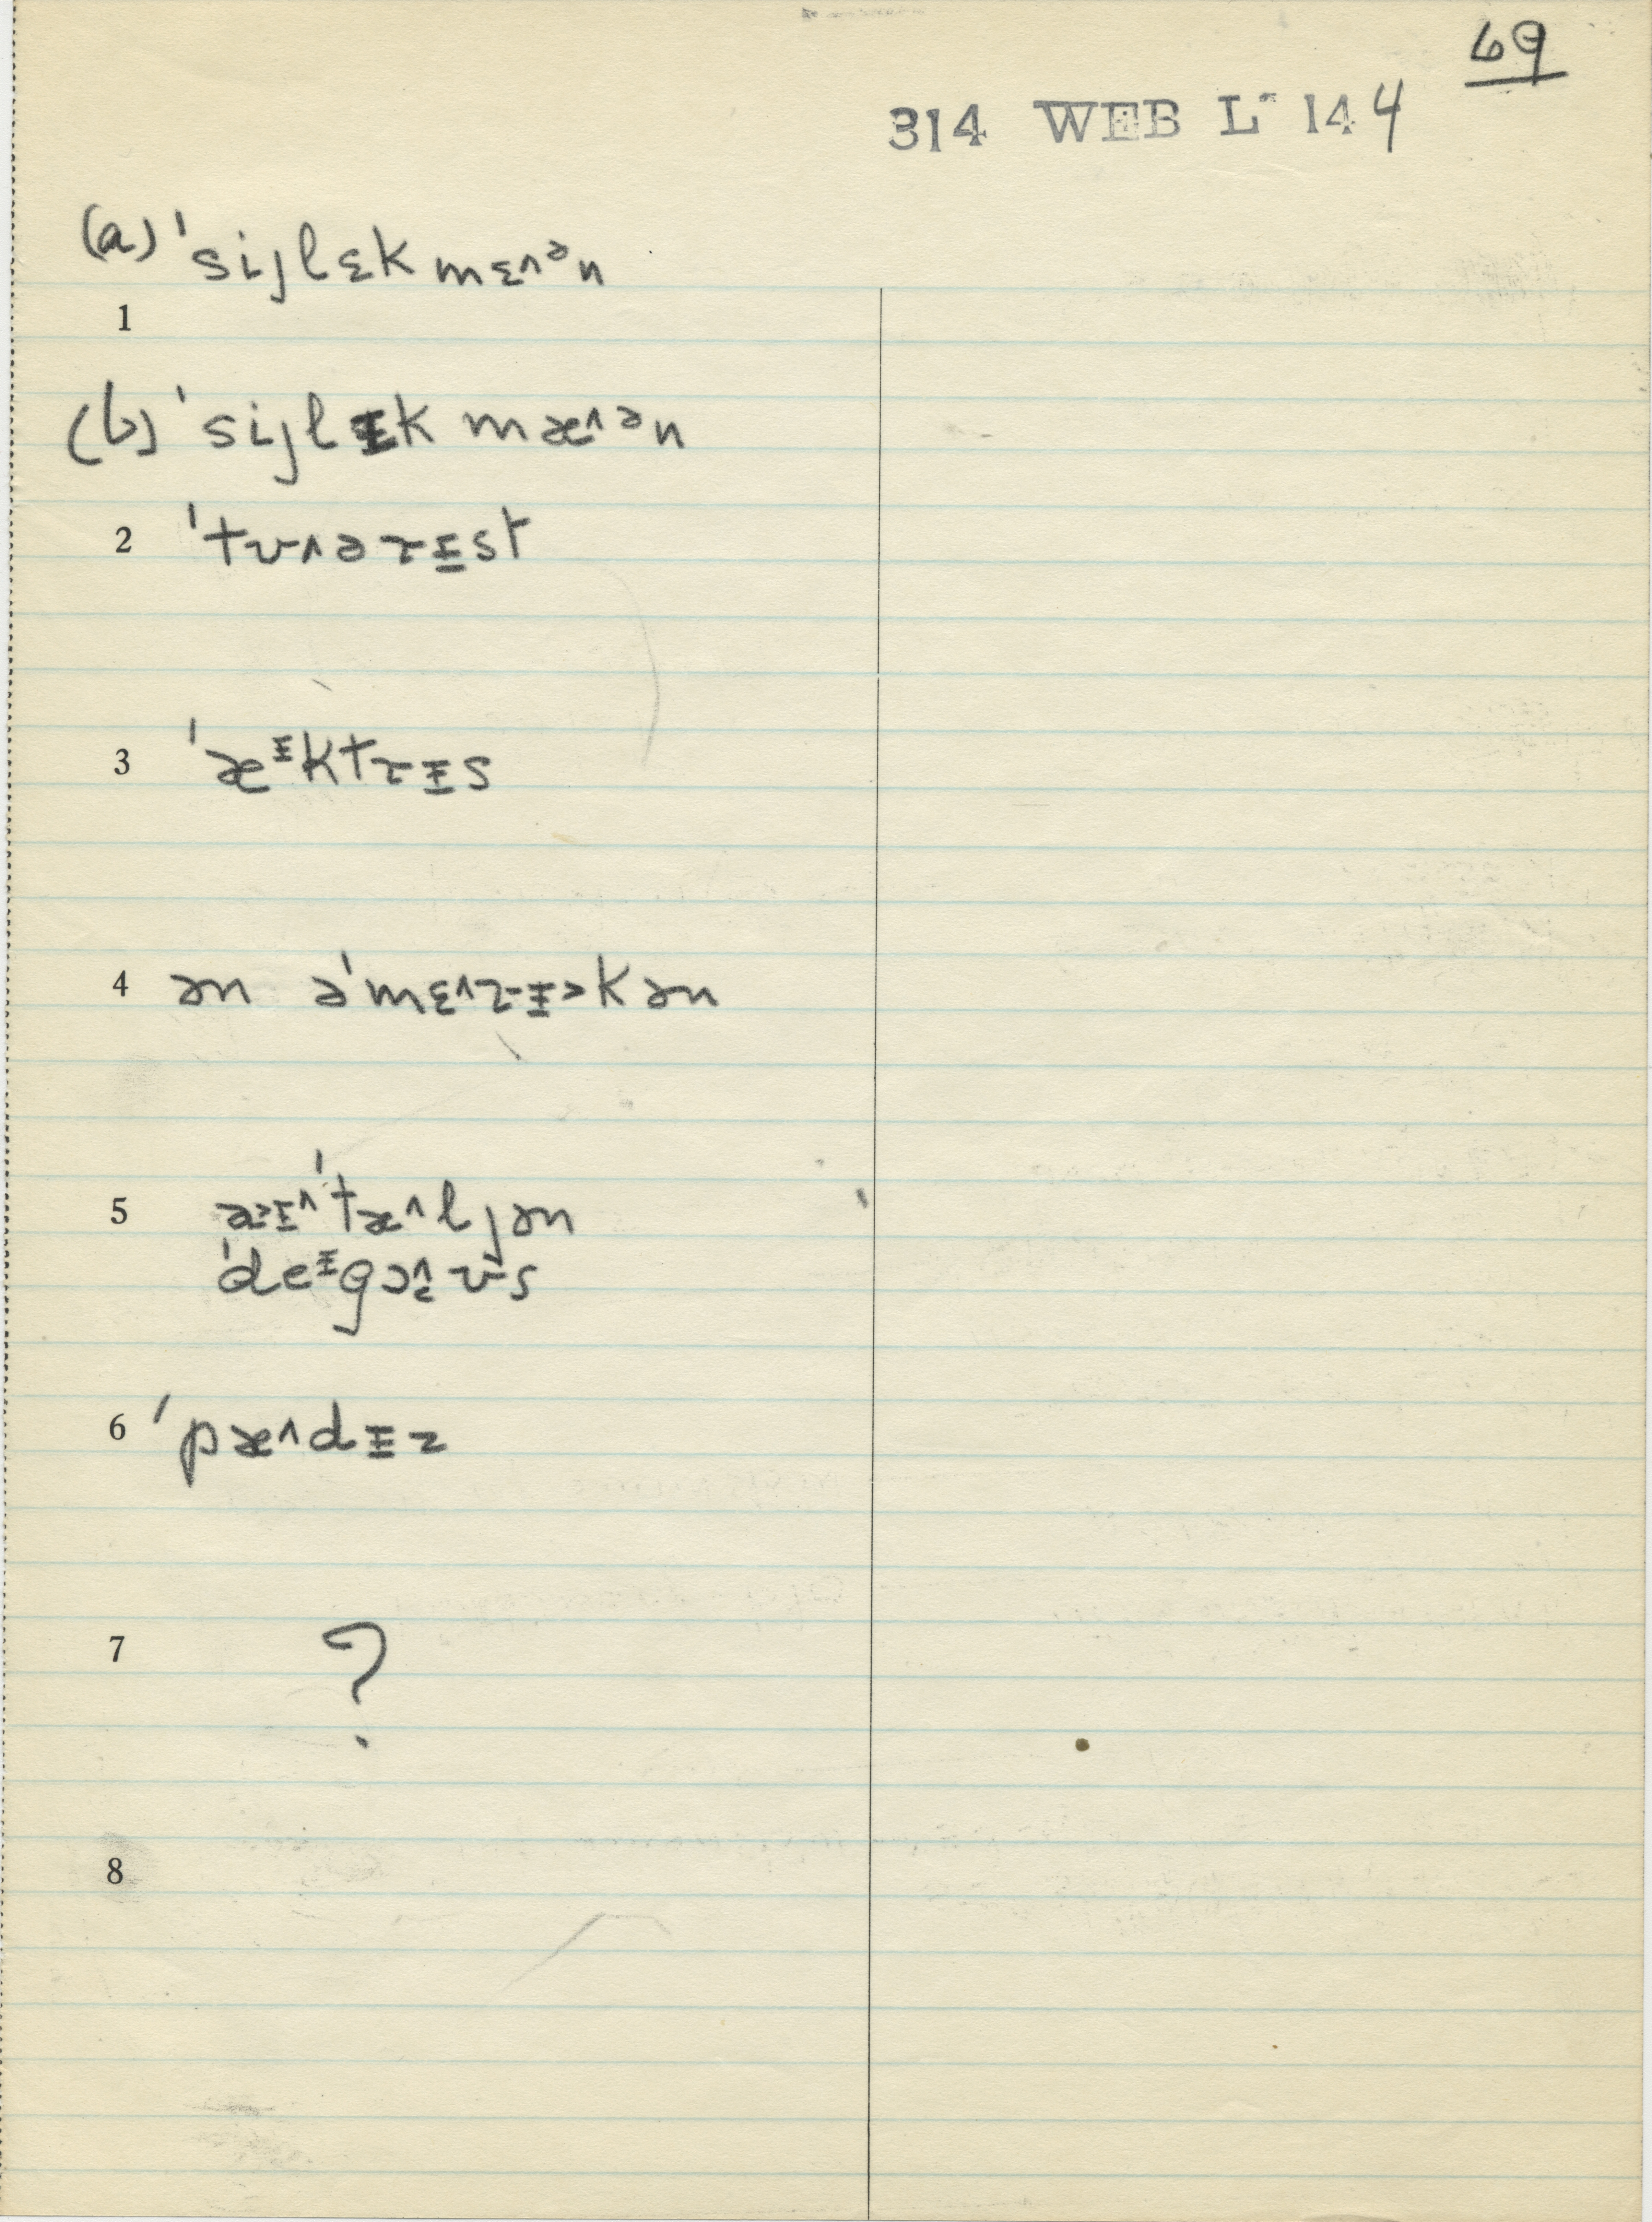 69
314 WEB L 144
(a) ˈsijlɛkmɛ˄ᵊn
1
(b) ˈsijlɪk mæ˄ᵊn
2 ˈtʊ˄əɹɪst
3 ˈæᶦktɹɪs
4 ən əˈmɛ˄ɹɪ˃kən
5 æ˃ɪ˄ˈtæ˄ljən
ˈdeᶦgɔ˄ʊs
6 ˈpæ˄dɪz
7 ?
8